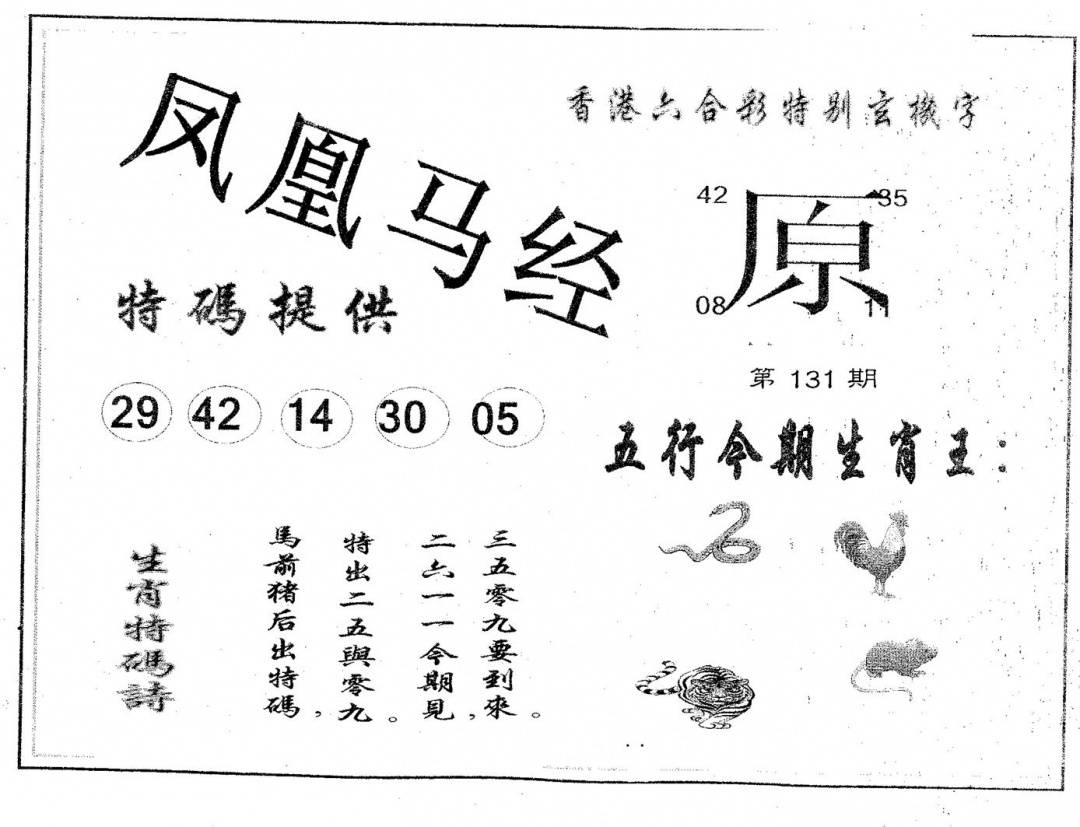 凤凰马经
香港六合彩特别玄機字
42 35
原
08 11
特碼提供
第 131 期
29 42 14 30 05
五行今期生肖王:
生肖特碼詩
馬前猪后出特碼,
特出二五與零九。
二六一一今期見,
三五零九要到來。